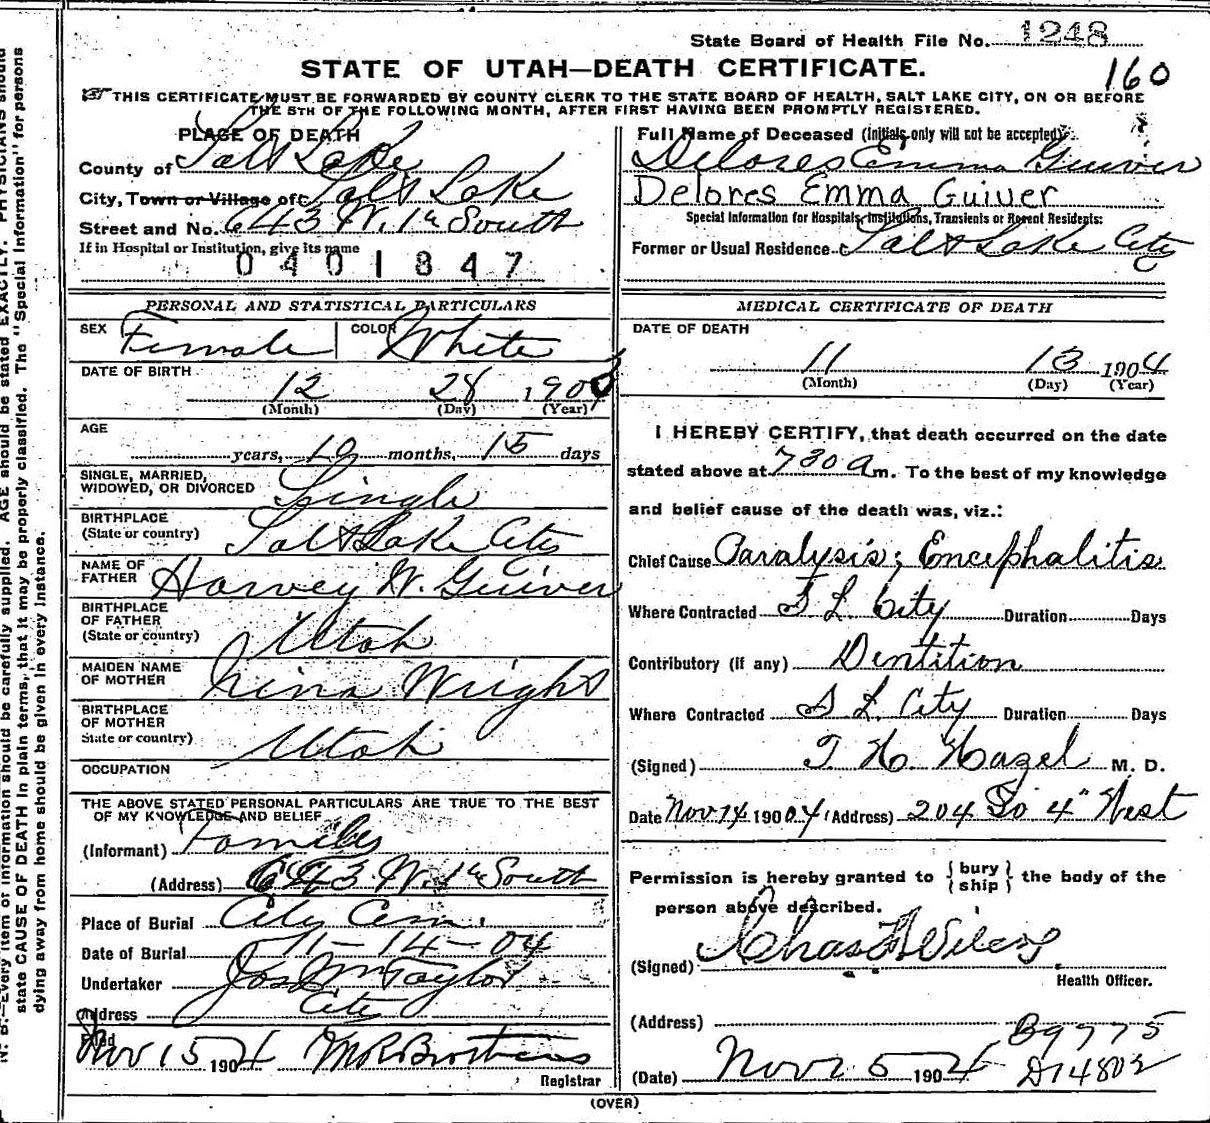 State Board of Health File No. 1248
STATE OF UTAH—DEATH CERTIFICATE.
160
THIS CERTIFICATE MUST BE FORWARDED BY COUNTY CLERK TO THE STATE BOARD OF HEALTH, SALT LAKE CITY, ON OR BEFORE
THE 5TH OF THE FOLLOWING MONTH, AFTER FIRST HAVING BEEN PROMPTLY REGISTERED.
PLACE OF DEATH
County of Salt Lake
City, Town or Village of Salt Lake
Street and No. 643 W. 1st South
If in Hospital or Institution, give its name
0401847
Full Name of Deceased (Initials only will not be accepted).
Delores Emma Guiver
Delores Emma Guiver
Special Information for Hospitals, Institutions, Transients or Recent Residents:
Former or Usual Residence Salt Lake City
PERSONAL AND STATISTICAL PARTICULARS
SEX Female COLOR White
DATE OF BIRTH
12 28 190
(Month) (Day) (Year)
AGE
years, 10 months, 15 days
SINGLE, MARRIED,
WIDOWED, OR DIVORCED Single
BIRTHPLACE
(State or country) Salt Lake City
NAME OF
FATHER Harvey W. Guiver
BIRTHPLACE
OF FATHER
(State or country) Utah
MAIDEN NAME
OF MOTHER Nina Wright
BIRTHPLACE
OF MOTHER
State or country) Utah
OCCUPATION
THE ABOVE STATED PERSONAL PARTICULARS ARE TRUE TO THE BEST
OF MY KNOWLEDGE AND BELIEF
(Informant) Family
(Address) 643 W. 1st South
Place of Burial City Cem.
Date of Burial 11-14-04
Undertaker Jos Wm Taylor
Address City
Filed Nov 15 1904 M R Brothers
Registrar
MEDICAL CERTIFICATE OF DEATH
DATE OF DEATH
11 13 1904
(Month) (Day) (Year)
I HEREBY CERTIFY, that death occurred on the date
stated above at 730 a m. To the best of my knowledge
and belief cause of the death was, viz.:
Chief Cause Paralysis; Encephalitis
Where Contracted S L City Duration Days
Contributory (if any) Dentition
Where Contracted S L. City Duration Days
(Signed) T. H. Hazel M. D.
Date Nov 14 1904 (Address) 204 So 4" West
Permission is hereby granted to {bury
ship} the body of the
person above described.
(Signed) Chas
Health Officer.
(Address)
B9775
D14802
(Date) Nov 15 1904
(OVER)
N. B.—Every item of information should be carefully supplied. AGE should be stated EXACTLY. PHYSICIANS should
state CAUSE OF DEATH in plain terms, that it may be properly classified. The "Special Information" for persons
dying away from home should be given in every instance.